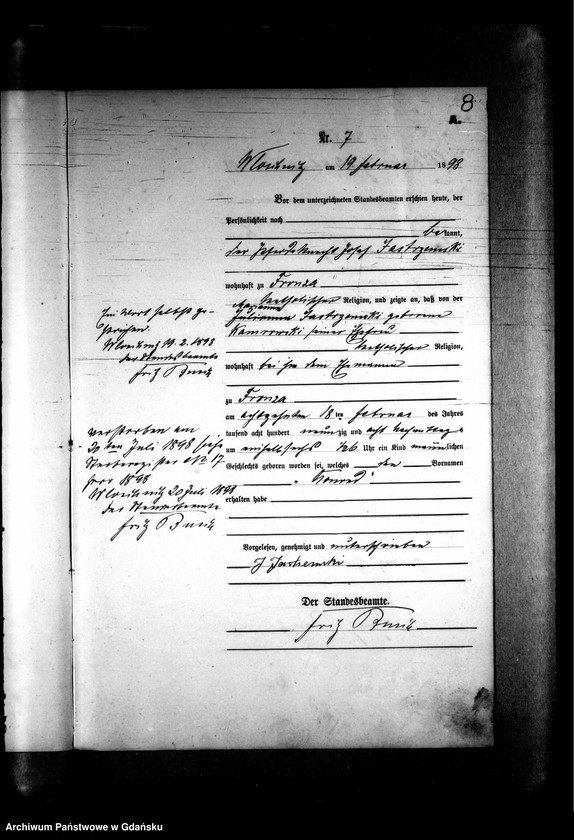 8
A.
Nr. 7
am 19 Februar 1898
Vor dem unterzeichneten Standesbeamten erschien heute, der
Persönlichkeit nach
bekannt,
der Pferdeknecht Josef Jastrzemski
wohnhaft zu Fronza
katholischer Religion, und zeigte an, daß von der
Marianna
Julianna Jastrzemski geborene
Kamrowski seiner Ehefrau
katholischer Religion,
wohnhaft bei ihm dem Ehemanne
zu Fronza
am achtzehnten 18 ten Februar des Jahres
tausend acht hundert neunzig und acht Nachmittags
um einhalbsechs ½6 Uhr ein Kind männlichen
Geschlechts geboren worden sei, welches den Vornamen
„Konrad"
erhalten habe
Vorgelesen, genehmigt und unterschrieben
J Jastrzemski
Der Standesbeamte.
Fritz
Ein Wort selbst ge-
strichen.
19.2.1898
der Standesbeamte
Fritz
verstorben am
Juli 1898 siehe
Sterberegister No 17
pro 1898
20 Juli 1898
der Standesbeamte
Fritz
Archiwum Państwowe w Gdańsku